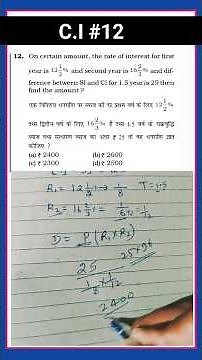 C.I #12
12. On certain amount, the rate of interest for first
year is 12 1/2 % and second year is 16 2/3 % and dif-
ference between SI and CI for 1.5 year is 25 then
find the amount ?
एक निश्चित धनराशि पर ब्याज की दर प्रथम वर्ष के लिए 12 1/2 %
तथा द्वितीय वर्ष के लिए 16 2/3 % है तथा 1.5 वर्ष के चक्रवृद्धि
ब्याज तथा साधारण ब्याज का अंतर ₹ 25 तो वह धनराशि ज्ञात
कीजिए ?
(a) ₹ 2400 (b) ₹ 2600
(c) ₹ 2300 (d) ₹ 2500
R₁ = 12 1/2 % → 1/8 T = 1.5
R₂ = 16 2/3 % = 1/6 × 1/2 = 1/12
D = P (R₁ × R₂)
25
25 × 96
1/8 × 1/12
2400